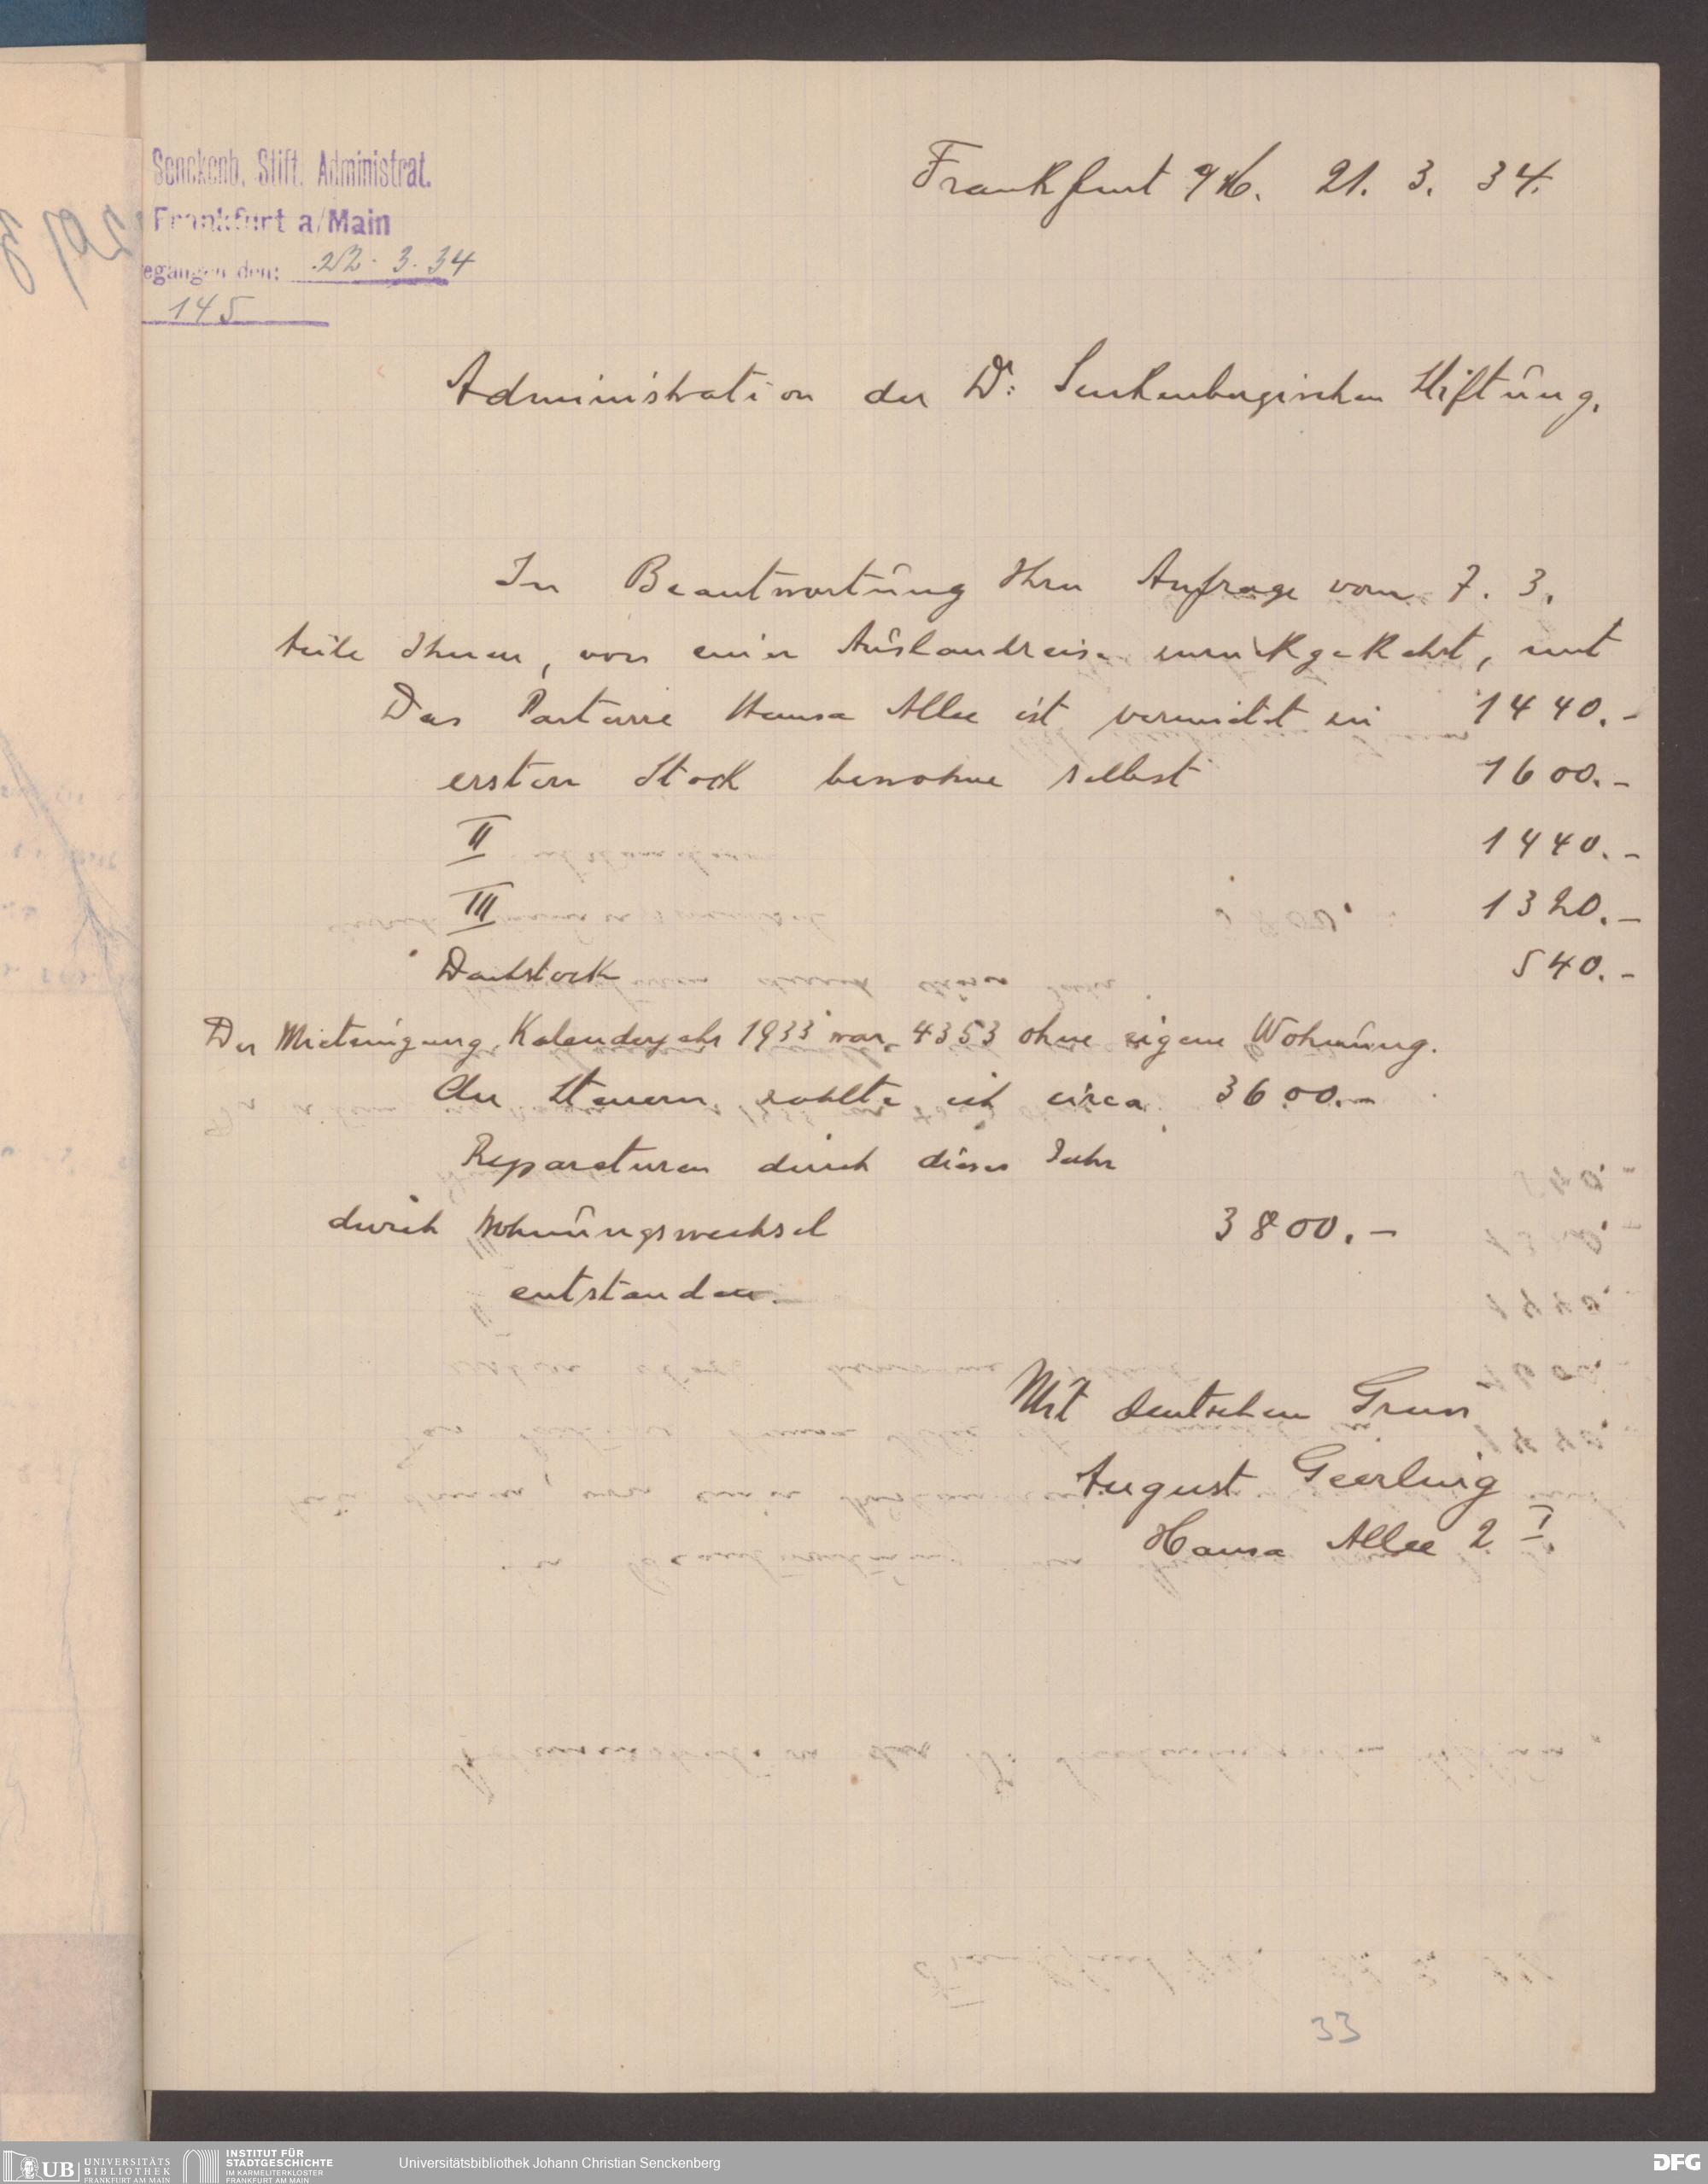 Senckenb. Stift. Administrat.
Frankfurt a/Main
egangen den: 22. 3. 34
145
Frankfurt a/M. 21. 3. 34.
Administration der Dr. Senkenbergischen Stiftung.
In Beantwortung Ihrer Anfrage vom 7. 3.
teile Ihnen, von einer Auslandreise zurückgekehrt, mit
Das Parterre Hansa Allee ist vermietet zu 1440.-
ersten Stock bewohne selbst 1600.-
II 1440.-
III 1320.-
Dachstock 540.-
Der Mieteingang Kalenderjahr 1933 war 4353 ohne eigene Wohnung.
An Steuern zahlte ich circa 3600.-
Reparaturen durch dieses Jahr
durch Wohnungswechsel 3800.-
entstanden.
Mit deutschem Gruss
August Geerling
Hansa Allee 2 I
33
UB UNIVERSITÄTS
BIBLIOTHEK
FRANKFURT AM MAIN
INSTITUT FÜR
STADTGESCHICHTE
IM KARMELITERKLOSTER
FRANKFURT AM MAIN
Universitätsbibliothek Johann Christian Senckenberg
DFG